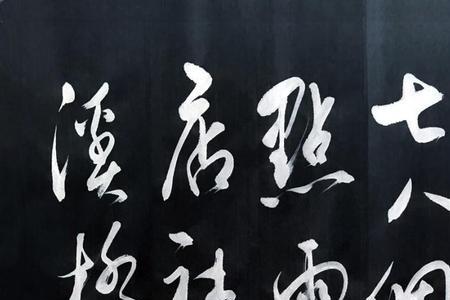 七八個
點雨
店社
溪橋